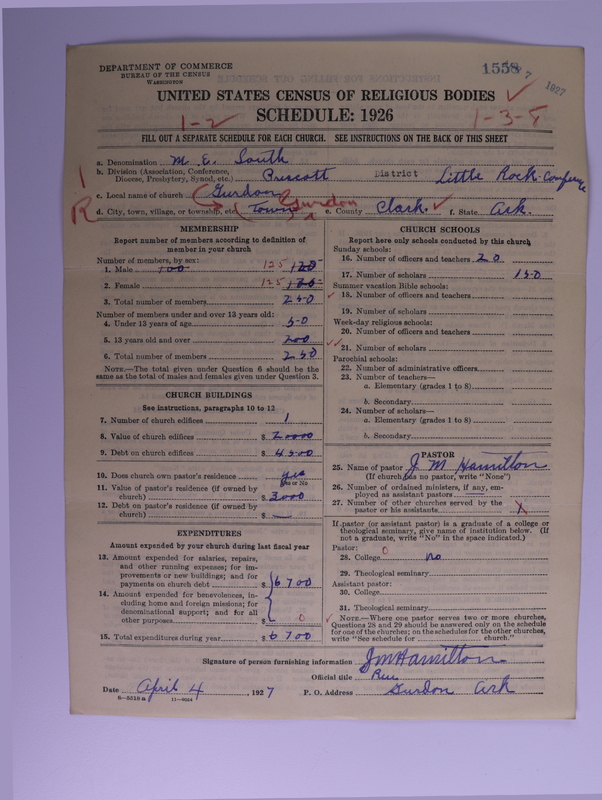 DEPARTMENT OF COMMERCE
BUREAU OF THE CENSUS
WASHINGTON
1558
7 1927
UNITED STATES CENSUS OF RELIGIOUS BODIES
SCHEDULE: 1926
1-2
1-3-8
FILL OUT A SEPARATE SCHEDULE FOR EACH CHURCH. SEE INSTRUCTIONS ON THE BACK OF THIS SHEET
a. Denomination M. E. South
b. Division (Association, Conference, Diocese, Presbytery, Synod, etc.) Prescott District Little Rock Conference
c. Local name of church Gurdon
d. City, town, village, or township, etc. (Town) Gurdon e. County Clark. f. State Ark.
1
R
MEMBERSHIP
Report number of members according to definition of
member in your church
Number of members, by sex:
1. Male 100 125 125
2. Female 125 125
3. Total number of members 250
Number of members under and over 13 years old:
4. Under 13 years of age 50
5. 13 years old and over 200
6. Total number of members 250
NOTE.—The total given under Question 6 should be the
same as the total of males and females given under Question 3.
CHURCH BUILDINGS
See instructions, paragraphs 10 to 12
7. Number of church edifices 1
8. Value of church edifices $ 20000
9. Debt on church edifices $ 4500
10. Does church own pastor's residence? yes
Yes or No
11. Value of pastor's residence (if owned by
church) $ 3000
12. Debt on pastor's residence (if owned by
church) $ —
EXPENDITURES
Amount expended by your church during last fiscal year
13. Amount expended for salaries, repairs,
and other running expenses; for im-
provements or new buildings; and for
payments on church debt $ 6700
14. Amount expended for benevolences, in-
cluding home and foreign missions; for
denominational support; and for all
other purposes $ 0
15. Total expenditures during year $ 6700
CHURCH SCHOOLS
Report here only schools conducted by this church
Sunday schools:
16. Number of officers and teachers 20
17. Number of scholars 150
Summer vacation Bible schools:
18. Number of officers and teachers
19. Number of scholars
Week-day religious schools:
20. Number of officers and teachers
21. Number of scholars
Parochial schools:
22. Number of administrative officers
23. Number of teachers—
a. Elementary (grades 1 to 8)
b. Secondary
24. Number of scholars—
a. Elementary (grades 1 to 8)
b. Secondary
PASTOR
25. Name of pastor J. M Hamilton
(If church has no pastor, write "None")
26. Number of ordained ministers, if any, em-
ployed as assistant pastors —
27. Number of other churches served by the
pastor or his assistants X
If pastor (or assistant pastor) is a graduate of a college or
theological seminary, give name of institution below. (If
not a graduate, write "No" in the space indicated.)
Pastor: 0
28. College no
29. Theological seminary
Assistant pastor:
30. College
31. Theological seminary
NOTE.—Where one pastor serves two or more churches,
Questions 28 and 29 should be answered only on the schedule
for one of the churches; on the schedules for the other churches,
write "See schedule for church."
Signature of person furnishing information J M Hamilton
Official title Rev
Date April 4, 1927 P. O. Address Gurdon Ark